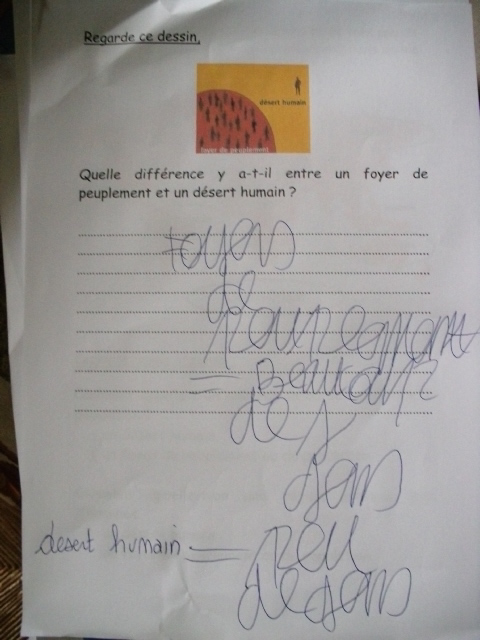 Regarde ce dessin,
désert humain
foyer de peuplement
Quelle différence y a-t-il entre un foyer de
peuplement et un désert humain ?
foyers
de
= Beaucoup
des
gens
desert humain = peu
de gens